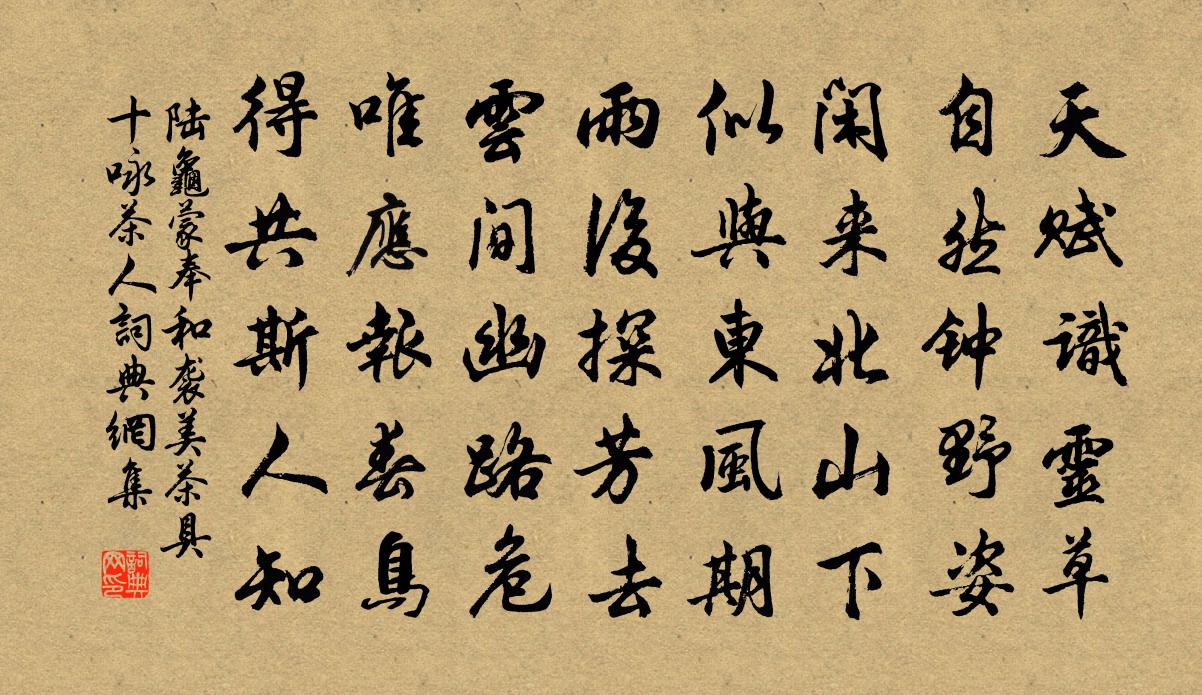 天赋識靈草
自然钟野姿
闲来北山下
似與東風期
雨後探芳去
雲间幽路危
唯應報春鳥
得共斯人知
陆龜蒙奉和袭美茶具
十咏茶人詞典網集
詞典网印